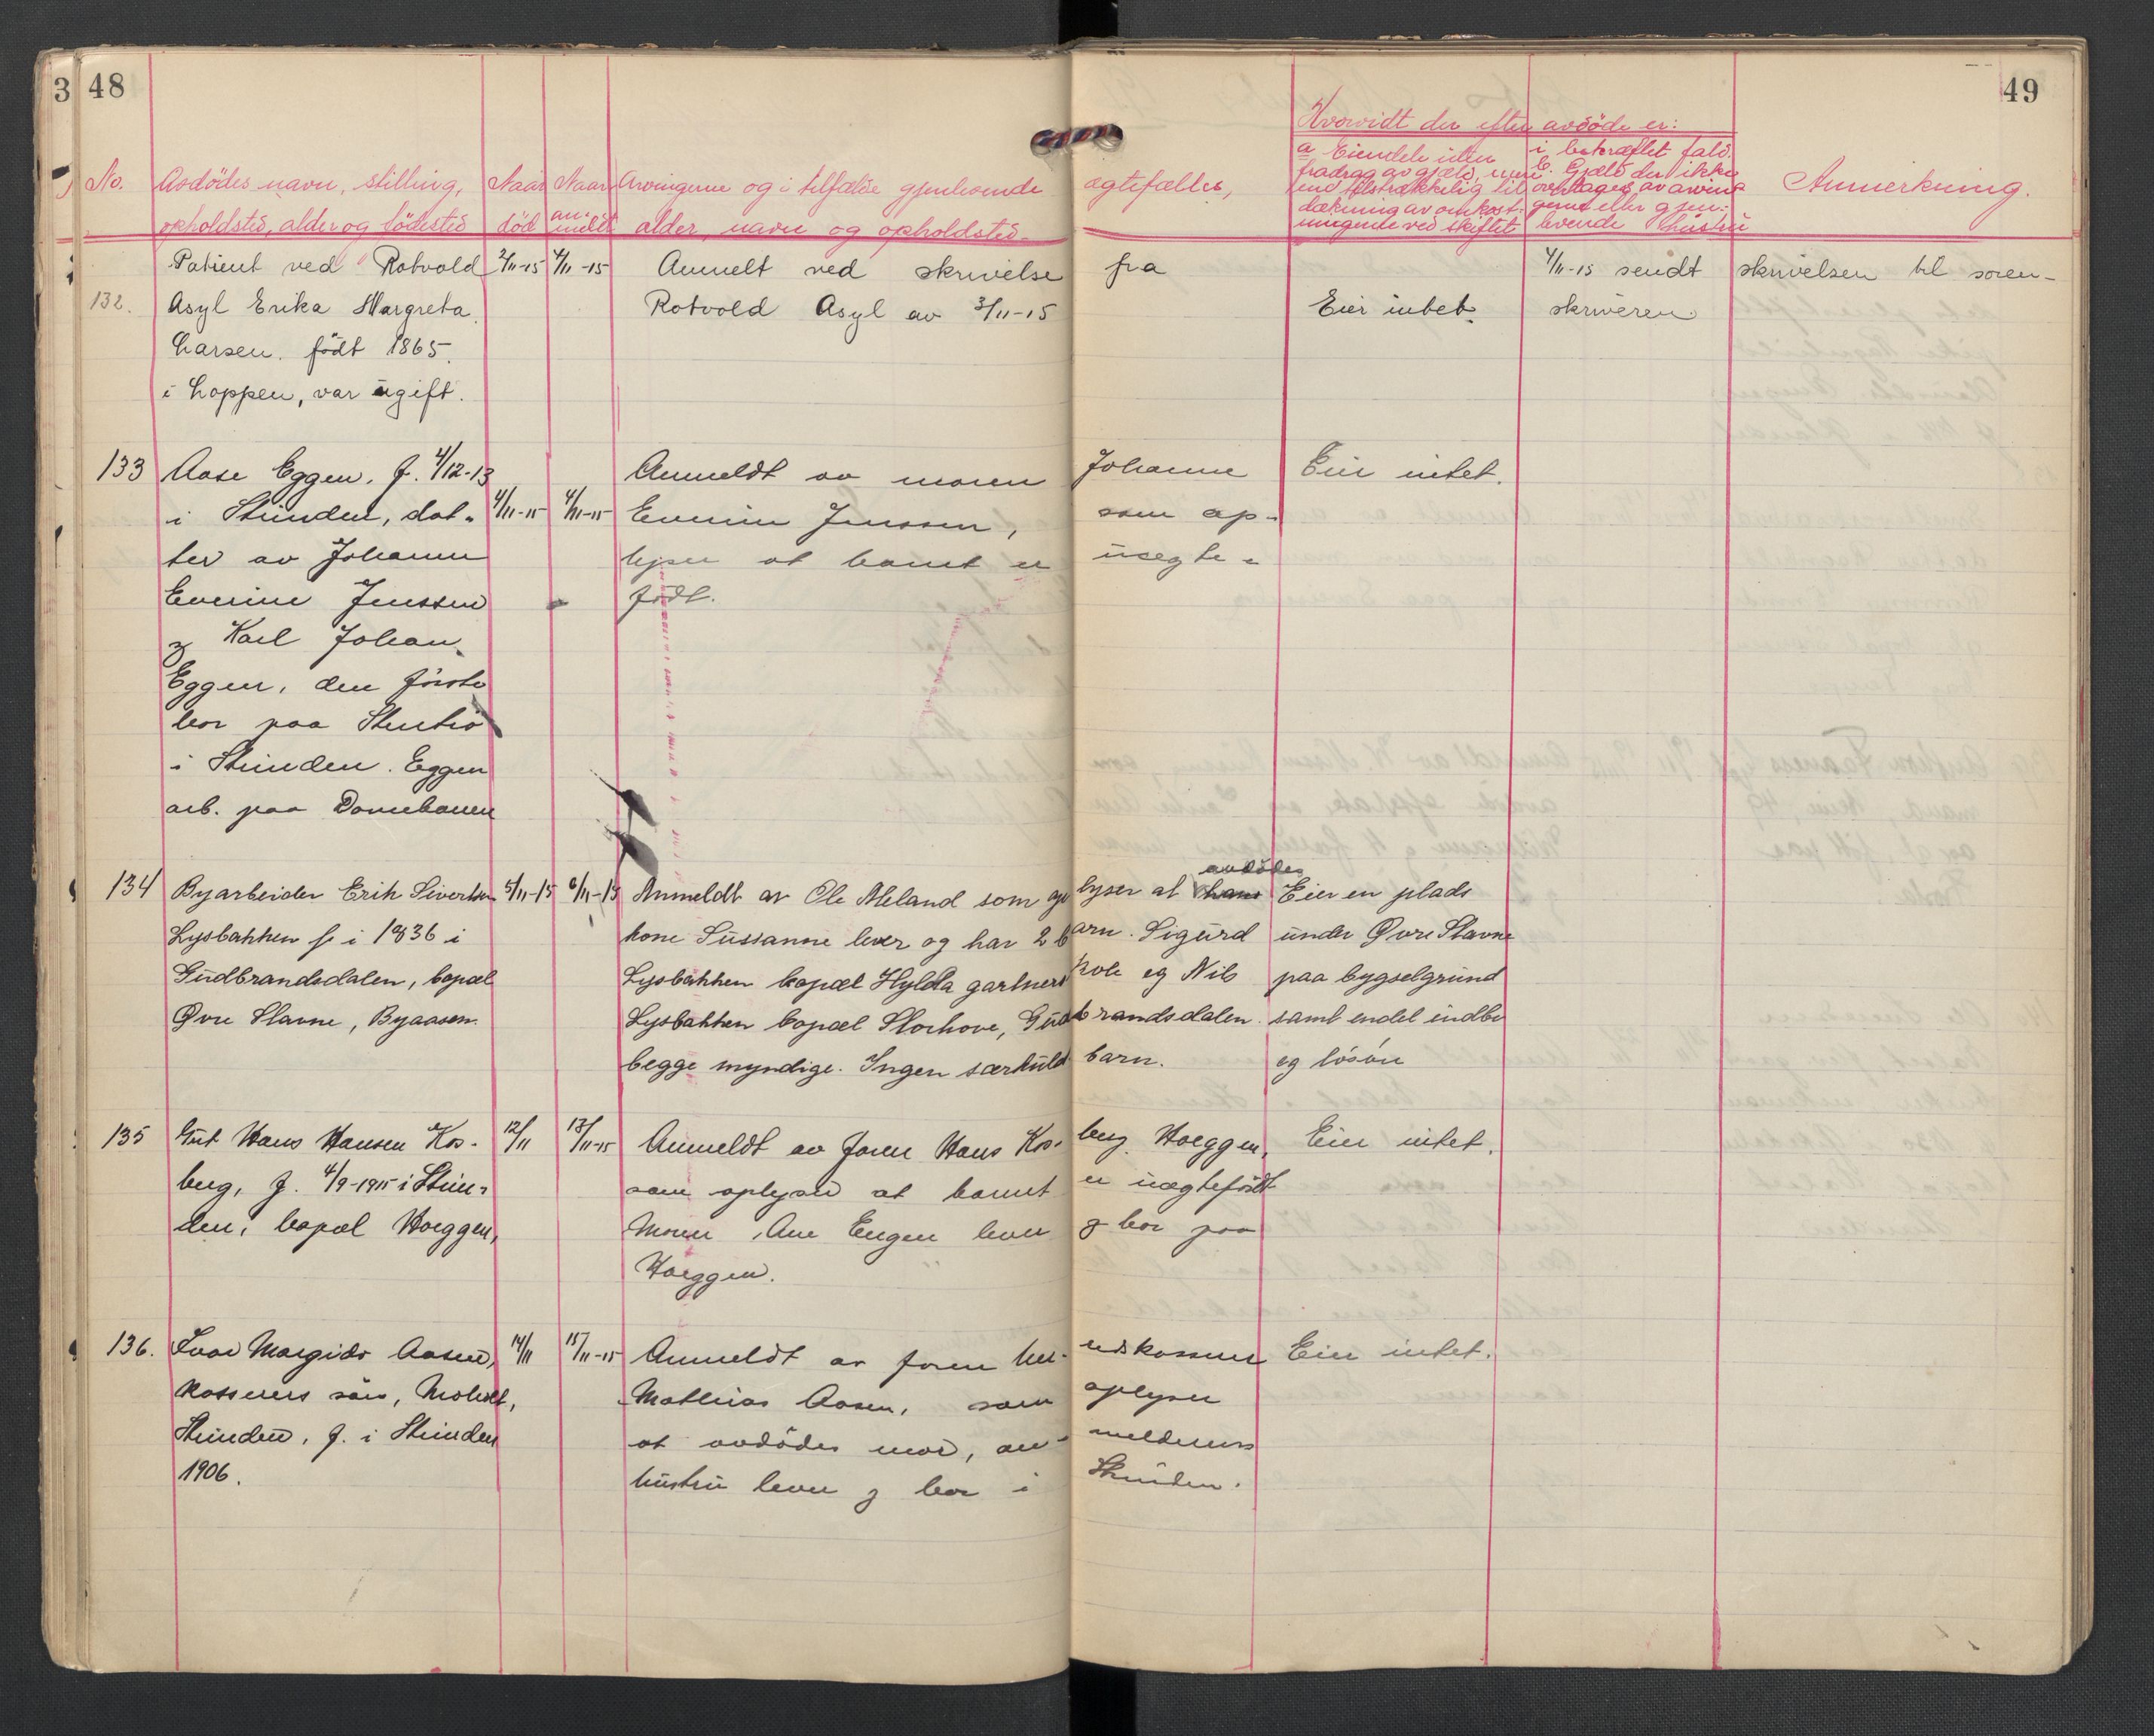 3 48
49
Hvorvidt der efter avdöde er:
No. Avdödes navn, stilling, opholdsted, alder og födested
Naar död
Naar anmeldt
Arvingerne og i tilfælde gjenlevende ægtefælles,
alder, navn og opholdsted.
a Eiendele uten fradrag av gjæld, mere end tilstrækkelig til dækning av omkostningerne ved skiftet
i bekræftet fald. b. Gjæld der ikke overtages av arvingerne eller gjenlevende hustru
Anmerkning.
132.
Patient ved Rotvold
Asyl Erika Margreta
Larsen. født 1865.
i Loppen, var ugift.
2/11-15 4/11-15
Anmelt ved skrivelse fra
Rotvold Asyl av 3/11-15
Eier intet.
4/11-15 sendt skrivelsen til sorenskriveren.
133 Aase Eggen, f. 4/12-13
i Strinden, dat-
ter av Johanne
Evenine Jenssen
og Karl Johan
Eggen, den første
bor paa
i Strinden. Eggen
arb. paa Dovrebanen
4/11-15 4/11-15
Anmeldt av moren Johanne
Evenine Jenssen, som op-
lyser at barnet er uegte-
født.
Eier intet.
134 Byarbeider Erik Sivertsen
Lysbakken f. i 1836 i
Gudbrandsdalen, bopæl
Øvre Stavne, Byaasen.
5/11-15 6/11-15
avdödes
Anmeldt av Ole Aleland som oplyser at hans
kone Sussanne lever og har 2 barn. Sigurd
Lysbakken bopæl Hylda gartnerskole og Nils
Lysbakken bopæl Storhove, Gudbrandsdalen.
begge myndige. Ingen særkuldbarn.
Eier en plads
under Øvre Stavne
paa bygselgrund
samt endel indbo
og lösöre
135 Gut Hans Hansen Kos-
berg, f. 4/9-1915 i Strin-
den, bopæl Hoeggen,
12/11 13/11-15
Anmeldt av faren Hans Kosberg, Hoeggen,
som oplyser at barnet er uægtefødt
Moren, Ane Engen lever og bor paa
Hoeggen.
Eier intet.
136. Ivar Margido Aasen,
kasserers søn, Moholt,
Strinden, f. i Strinden
1906.
14/11 15/11-15
Anmeldt av faren herredskasserer
Mathias Aasen, som oplyser
at avdödes mor, anmelderens
hustru lever og bor i Strinden.
Eier intet.